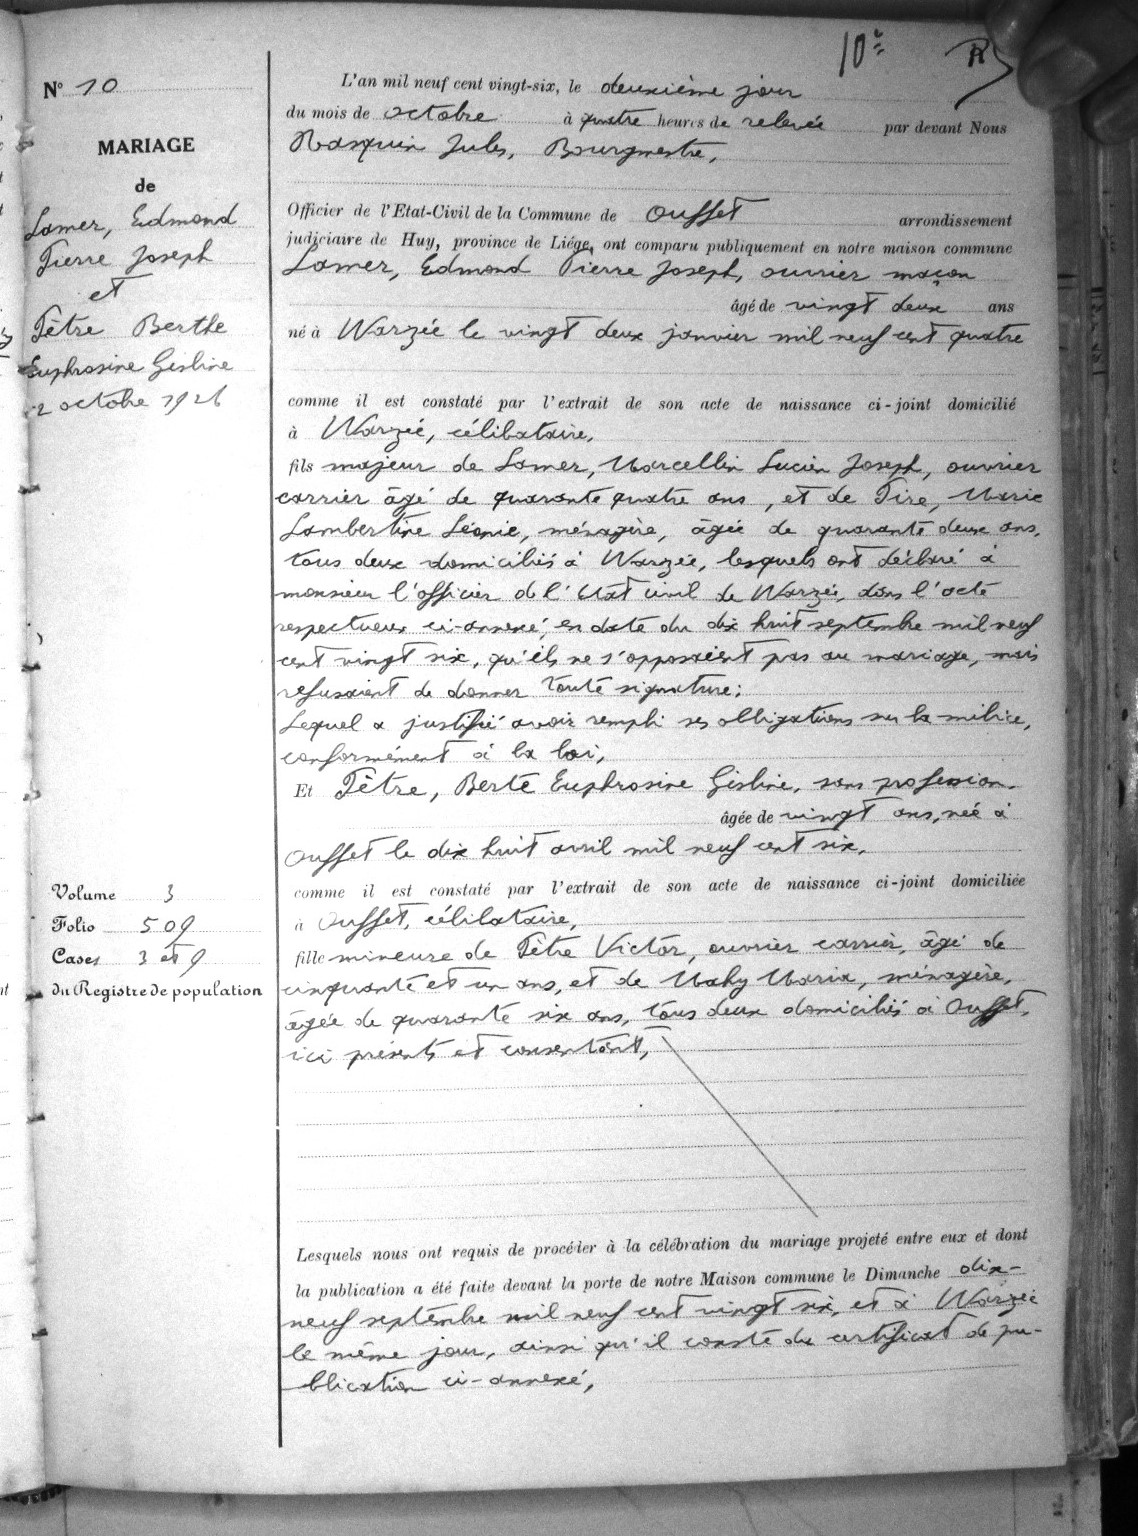 10e
N° 10
MARIAGE
de
Lamer, Edmond
Pierre Joseph
et
Pètre Berthe
Euphrosine Gisline
2 octobre 1926
Volume 3
Folio 509
Cases 3 et 9
du Registre de population
L'an mil neuf cent vingt-six, le deuxième jour
du mois de octobre à quatre heures de relevée par devant Nous
Rasquin Jules, Bourgmestre,
Officier de l'Etat-Civil de la Commune de Ouffet arrondissement
judiciaire de Huy, province de Liége, ont comparu publiquement en notre maison commune
Lamer, Edmond Pierre Joseph, ouvrier maçon
âgé de vingt deux ans
né à Warzée le vingt deux janvier mil neuf cent quatre
comme il est constaté par l'extrait de son acte de naissance ci-joint domicilié
à Warzée, célibataire,
fils majeur de Lamer, Marcellin Lucien Joseph, ouvrier
carrier âgé de quarante quatre ans, et de Tire, Marie
Lambertine Léonie, ménagère, âgée de quarante deux ans,
tous deux domiciliés à Warzée, lesquels ont déclaré à
monsieur l'officier de l'état civil de Warzée, dans l'acte
respectueux ci-annexé, en date du dix huit septembre mil neuf
cent vingt six, qu'ils ne s'opposaient pas au mariage, mais
refusaient de donner toute signature;
Lequel a justifié avoir rempli ses obligations sur la milice,
conformément à la loi;
Et Pètre, Berte Euphrosine Gisline, sans profession.
âgée de vingt ans, née à
Ouffet le dix huit avril mil neuf cent six.
comme il est constaté par l'extrait de son acte de naissance ci-joint domiciliée
à Ouffet, célibataire,
fille mineure de Pètre Victor, ouvrier carrier, âgé de
cinquante et un ans, et de Mahy Maria, ménagère,
âgée de quarante six ans, tous deux domiciliés à Ouffet,
ici présents et consentant,
Lesquels nous ont requis de procéder à la célébration du mariage projeté entre eux et dont
la publication a été faite devant la porte de notre Maison commune le Dimanche dix-
neuf septembre mil neuf cent vingt six, et à Warzée
le même jour, ainsi qu'il conste du certificat de pu-
blication ci-annexé,